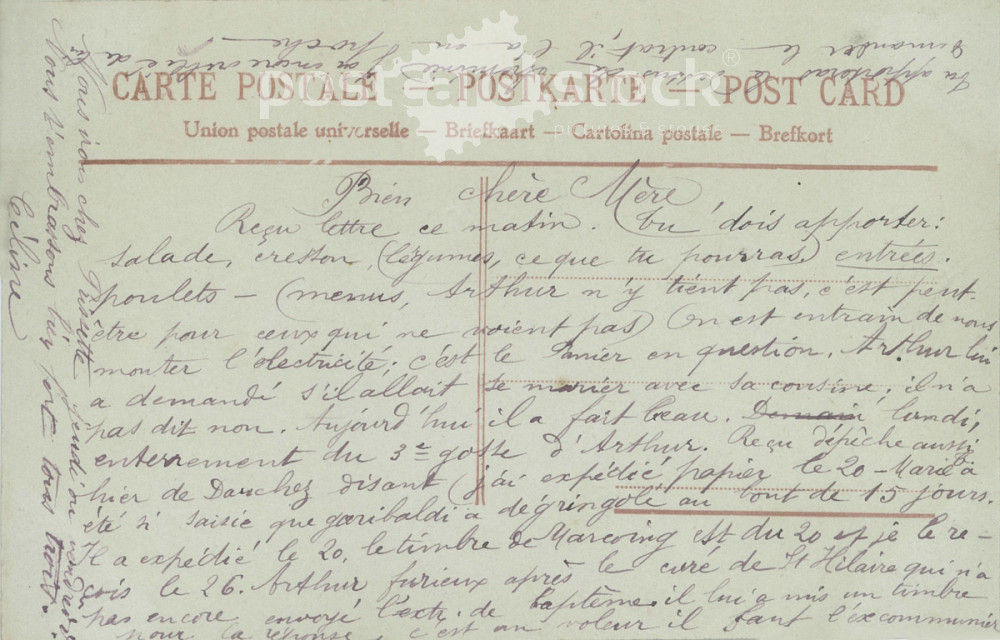 CARTE POSTALE — POSTKARTE — POST CARD
Union postale universelle — Briefkaart — Cartolina postale — Brefkort
postcardstock
Bien chère Mère
Reçu lettre ce matin. Tu dois apporter:
salade, cresson, (légumes, ce que tu pourras) entrées.
poulets — (menus, Arthur n'y tient pas, c'est peut-
être pour ceux qui ne voient pas) On est entrain de nous
monter l'électricité; c'est le en question. Arthur lui
a demandé s'il allait se marier avec sa cousine; il n'a
pas dit non. Aujourd'hui il a fait beau. Demain lundi,
enterrement du 3e gosse d'Arthur. Reçu dépêche aussi
hier de Darchez disant j'ai expédié papier le 20 — Maria a
été si saisie que garibaldi a dégringolé au bout de 15 jours.
Il a expédié le 20, le timbre de Marcoing est du 20 et je le re-
çois le 26. Arthur furieux après le curé de St Hilaire qui n'a
pas encore envoyé l'extr. de baptème. il lui a mis un timbre
pour la réponse, c'est un voleur il faut l'excommunier
Tu apporteras le
demander le contrat, il l'a en poche.
Nous irons chez jeudi ou vendredi
Nous t'embrassons bien fort tous trois.
Céline